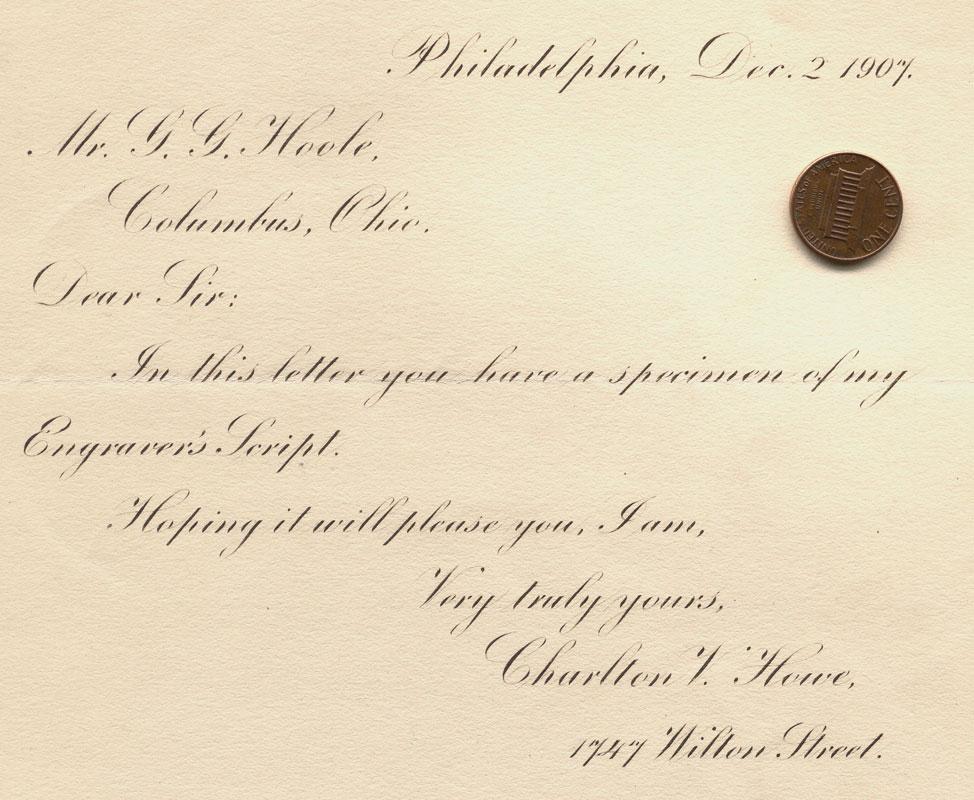 Philadelphia, Dec. 2 1907.
Mr. G. G. Hoole,
Columbus, Ohio.
Dear Sir:
In this letter you have a specimen of my
Engraver's Script.
Hoping it will please you, I am,
Very truly yours,
Charlton V. Howe,
1747 Wilton Street.
UNITED STATES OF AMERICA
ONE CENT